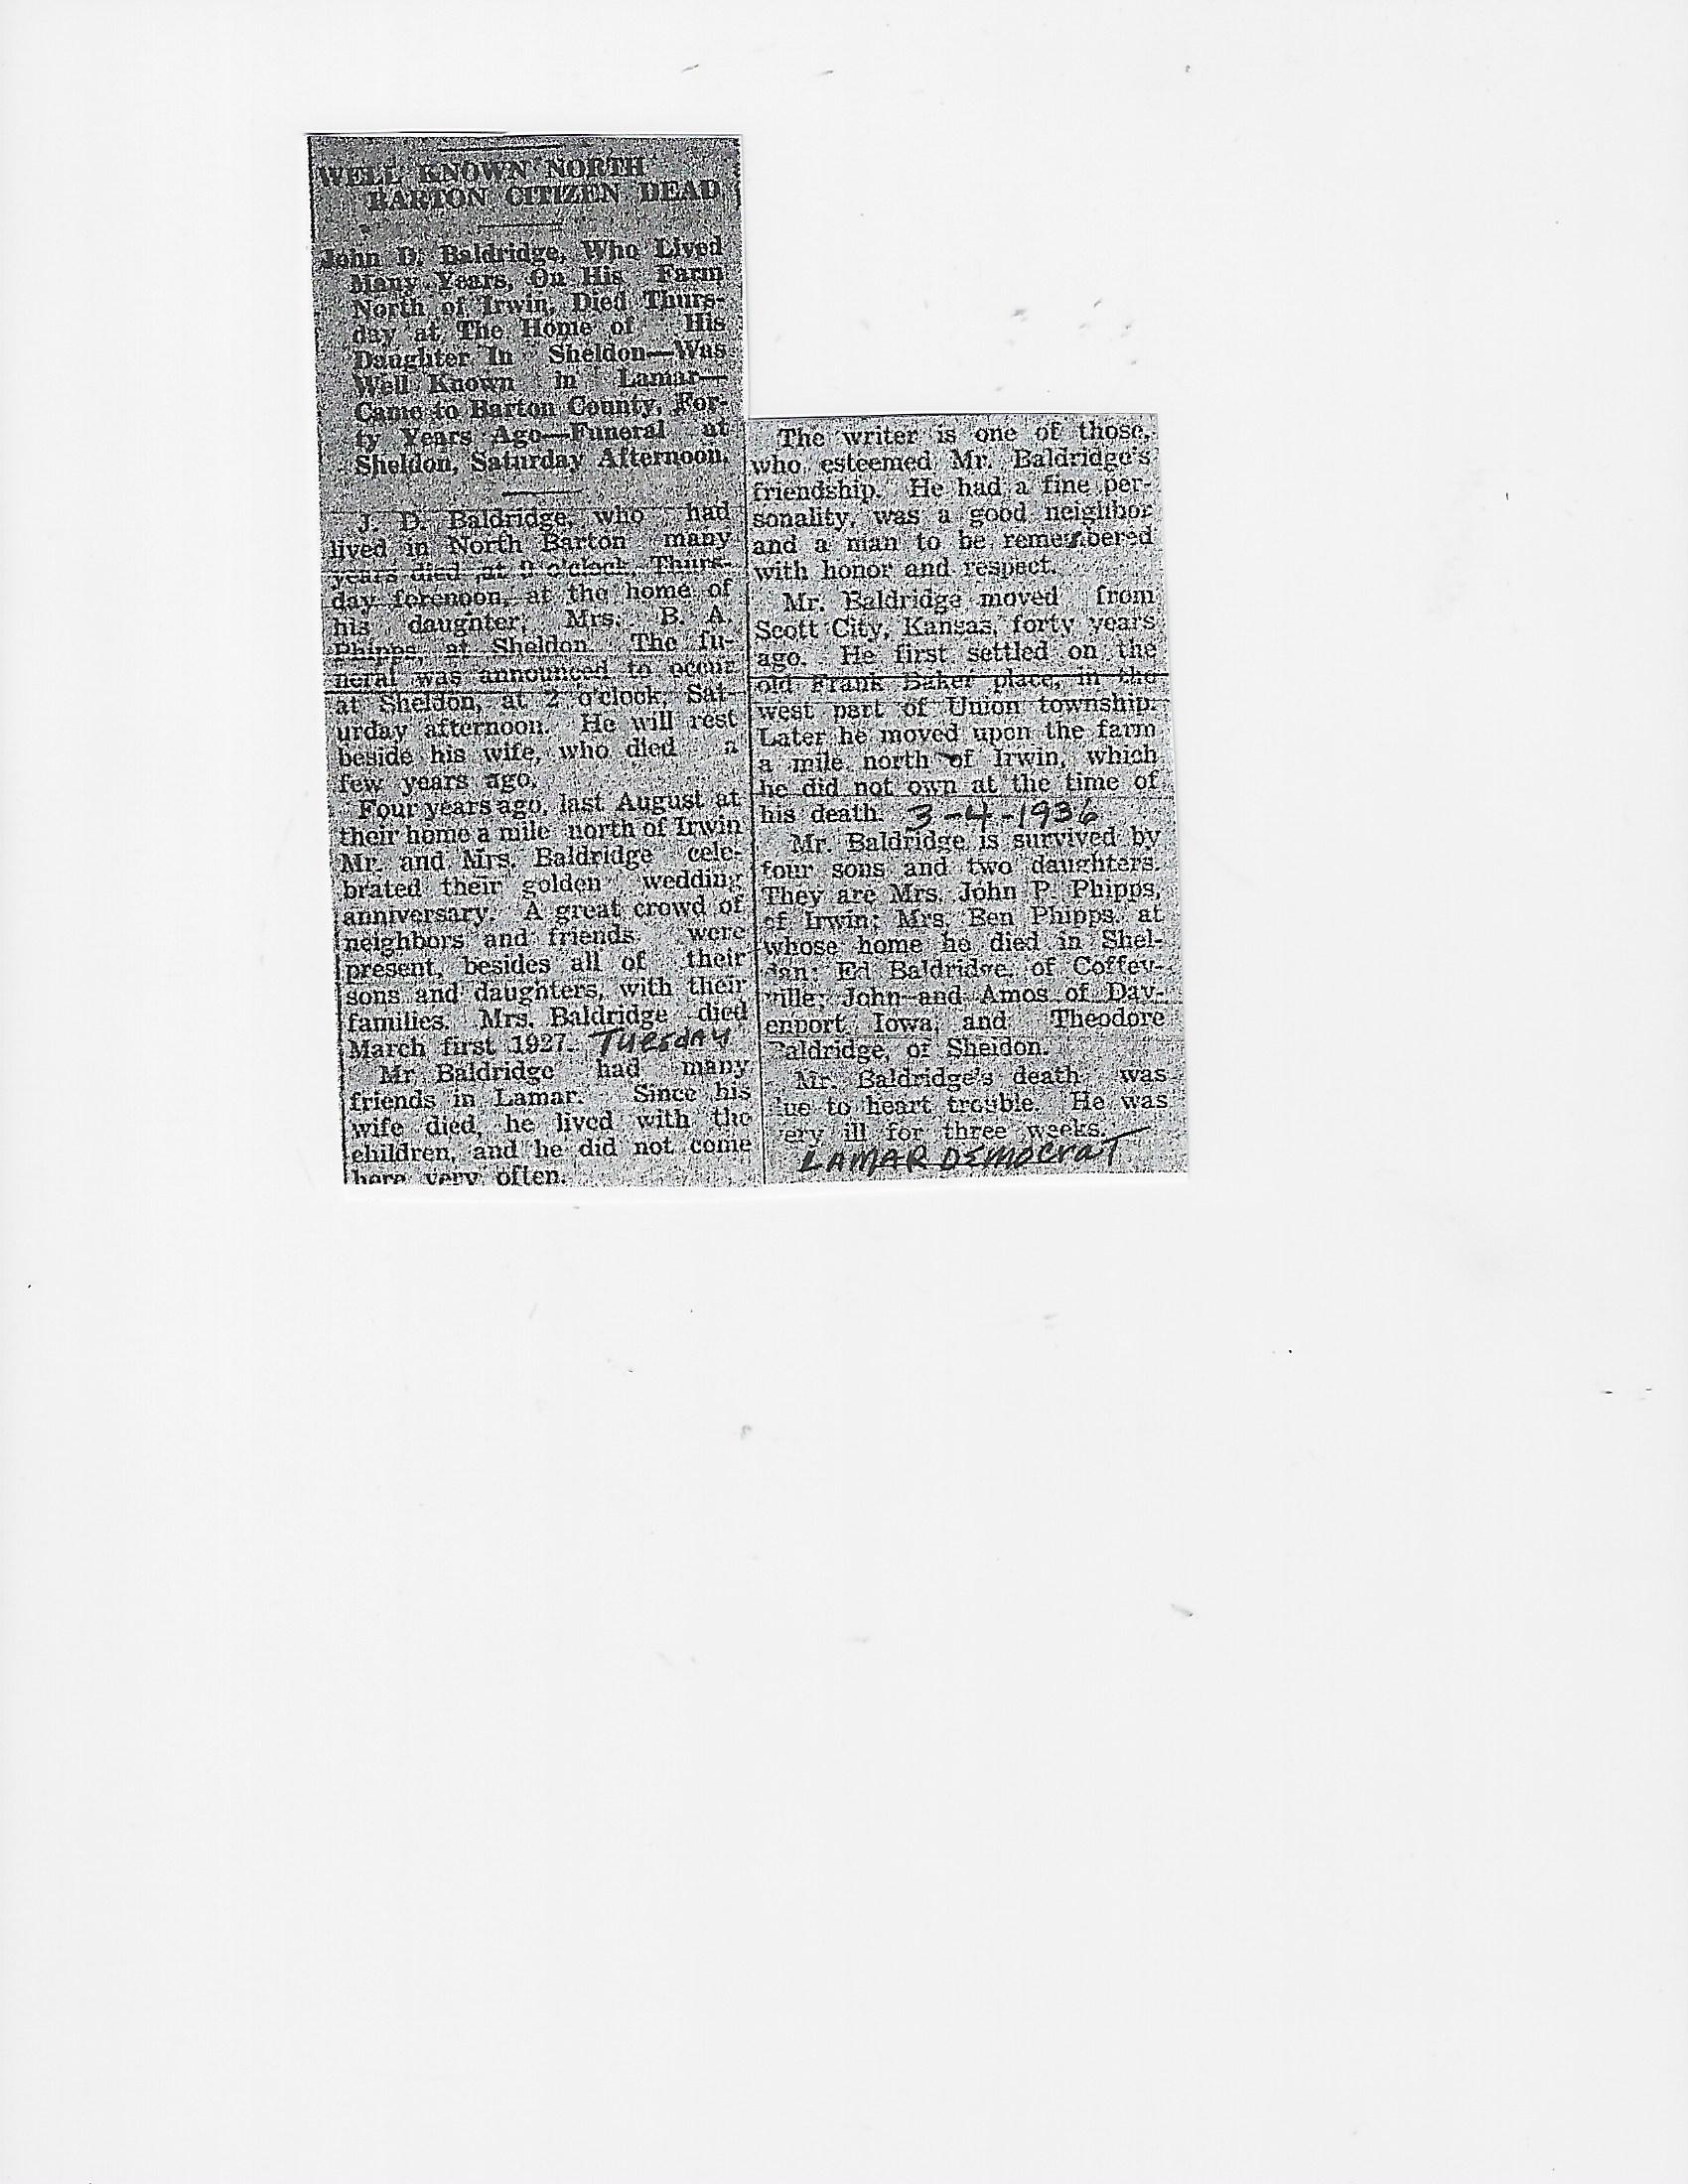 WELL KNOWN NORTH
BARTON CITIZEN DEAD
John D. Baldridge, Who Lived
Many Years, On His Farm
North of Irwin, Died Thurs-
day at The Home of His
Daughter In Sheldon—Was
Well Known in Lamar—
Came to Barton County, For-
ty Years Ago—Funeral at
Sheldon, Saturday Afternoon.
J. D. Baldridge, who had
lived in North Barton many
years died at 9 o'clock Thurs-
day forenoon, at the home of
his daughter, Mrs. B. A.
Phipps, at Sheldon. The fu-
neral was announced to occur
at Sheldon, at 2 o'clock, Sat-
urday afternoon. He will rest
beside his wife, who died a
few years ago.
Four years ago, last August at
their home a mile north of Irwin
Mr. and Mrs. Baldridge cele-
brated their golden wedding
anniversary. A great crowd of
neighbors and friends were
present, besides all of their
sons and daughters, with their
families. Mrs. Baldridge died
March first 1927. Tuesday
Mr. Baldridge had many
friends in Lamar. Since his
wife died, he lived with the
children, and he did not come
here very often.
The writer is one of those,
who esteemed Mr. Baldridge's
friendship. He had a fine per-
sonality, was a good neighbor
and a man to be remembered
with honor and respect.
Mr. Baldridge moved from
Scott City, Kansas, forty years
ago. He first settled on the
old Frank Baker place, in the
west part of Union township.
Later he moved upon the farm
a mile north of Irwin, which
he did not own at the time of
his death. 3-4-1936
Mr. Baldridge is survived by
four sons and two daughters.
They are Mrs. John P. Phipps,
of Irwin; Mrs. Ben Phipps, at
whose home he died in Shel-
dan; Ed Baldridge, of Coffey-
ville; John and Amos of Dav-
enport Iowa, and Theodore
Baldridge, of Sheldon.
Mr. Baldridge's death was
due to heart trouble. He was
very ill for three weeks.
LAMAR DEMOCRAT